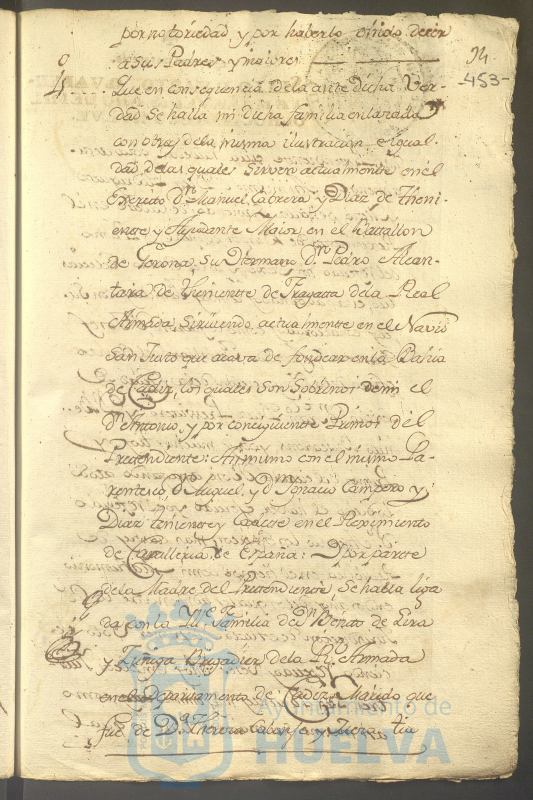 por notoriedad y por haberlo oido decir
a sus Padres y maiores
94
453-
4º Que en consequencia de la ante dicha Ver-
dad se halla mi dicha familia enlazada
con otras de la misma ilustracion e igual-
dad, de las quales sirven actualmente en el
Exercito Dn. Manuel Cabrera y Diaz de theni-
ente y Ayudante Maior en el Battallon
de Gerona, su Hermano Dn. Pedro Alcan-
tara de Thenientte de Fragatta de la Real
Armada, sirviendo actualmente en el Navio
San Justo que acava de fondear en la Bahia
de Cadiz, los quales son Sobrinos de mi el
Dn. Antonio, y por conciguiente Primos del
Pretendiente: Asimismo con el mismo Pa-
rentesco, Dn. Miguel, y Dn. Ignacio Campero y
Diaz teniente y Cadete en el Reximiento
de Cavalleria de España: Y por parte
de la Madre del Pretendiente, se halla liga
da con la Ill. familia de Dn. Benato de Lira
y Zuñiga Brigadier de la Rl. Armada
en el Departamento de Cadiz, Marido que
fue de Da. Theresa y tia
Ayuntamiento de
HUELVA